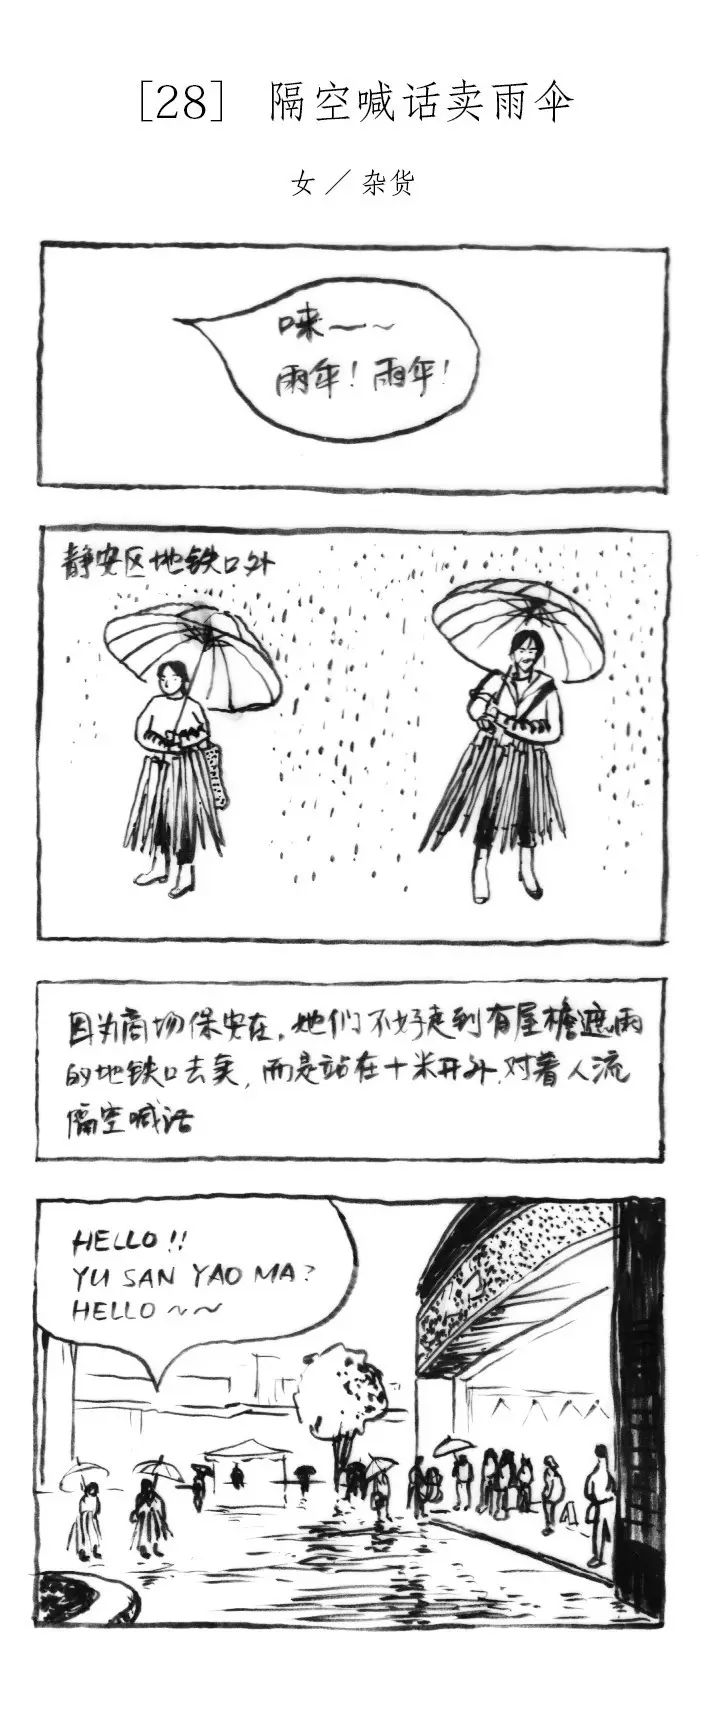 [28] 隔空喊话卖雨伞
女／杂货
唻~~
雨伞！雨伞！
静安区地铁口外
因为商场保安在，她们不好走到有屋檐遮雨
的地铁口去卖，而是站在十米开外，对着人流
隔空喊话
HELLO!!
YU SAN YAO MA?
HELLO~~